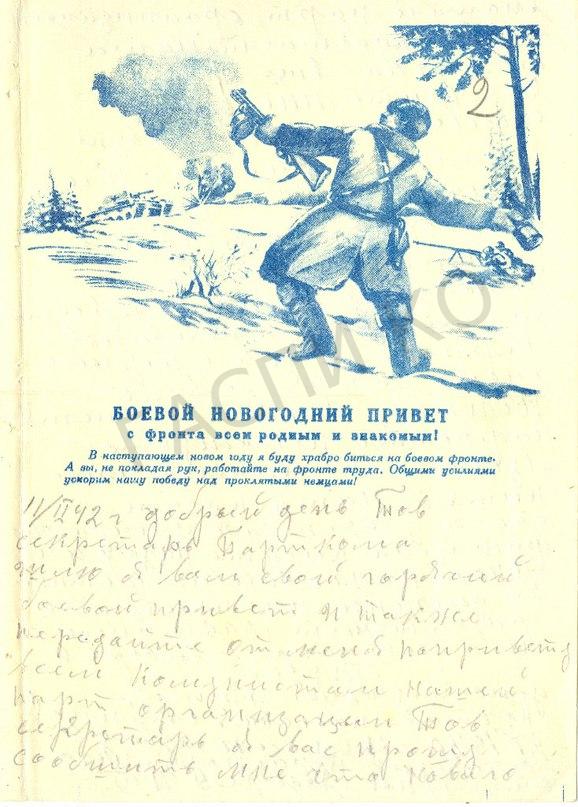 2
БОЕВОЙ НОВОГОДНИЙ ПРИВЕТ
с фронта всем родным и знакомым!
В наступающем новом году я буду храбро биться на боевом фронте.
А вы, не покладая рук, работайте на фронте труда. Общими усилиями
ускорим нашу победу над проклятыми немцами!
ГАСПИ КО
11/II 42 г добрый день Тов
секретарь Парткома
шлю я вам свой горячий
боевой привет и также
передайте от меня по привету
всем комунистам нашей
парт организацыи Тов
секретарь я вас прошу
сообщить мне што нового